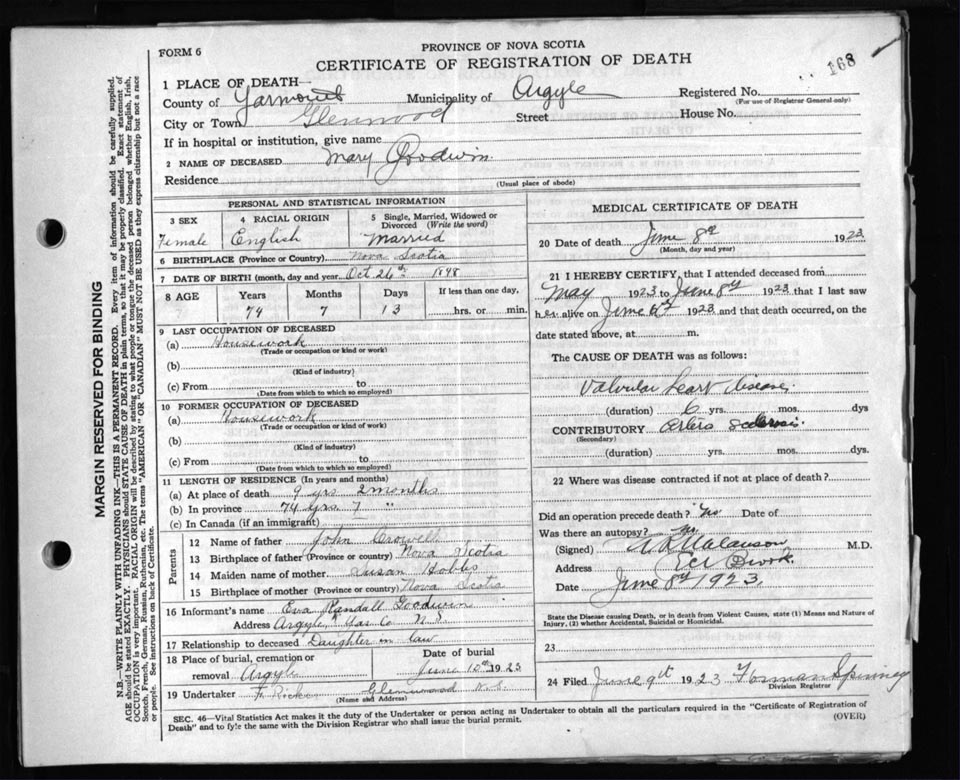 FORM 6
PROVINCE OF NOVA SCOTIA
CERTIFICATE OF REGISTRATION OF DEATH
168
1 PLACE OF DEATH—
County of Yarmouth Municipality of Argyle Registered No.
(For use of Registrar General only)
City or Town Glenwood Street House No.
If in hospital or institution, give name
2 NAME OF DECEASED Mary Goodwin
Residence
(Usual place of abode)
MARGIN RESERVED FOR BINDING
N.B.—WRITE PLAINLY WITH UNFADING INK—THIS IS A PERMANENT RECORD. Every item of information should be carefully supplied.
AGE should be stated EXACTLY. PHYSICIANS should STATE CAUSE OF DEATH in plain terms, so that it may be properly classified. Exact statement of
OCCUPATION is very important. RACIAL ORIGIN will be described by stating to what people or tongue the deceased person belonged whether English, Irish,
Scotch, French, German, Russian, Ruthenian, etc. The terms "AMERICAN" OR "CANADIAN" MUST NOT BE USED as they express citizenship but not a race
or people. See instructions on back of Certificate.
PERSONAL AND STATISTICAL INFORMATION
3 SEX
Female
4 RACIAL ORIGIN
English
5 Single, Married, Widowed or
Divorced (Write the word)
Married
6 BIRTHPLACE (Province or Country) Nova Scotia
7 DATE OF BIRTH (month, day and year) Oct 26th 1848
8 AGE Years Months Days If less than one day,
74 7 13 hrs. or min.
9 LAST OCCUPATION OF DECEASED
(a) Housework
(Trade or occupation or kind or work)
(b)
(Kind of industry)
(c) From to
(Date from which to which so employed)
10 FORMER OCCUPATION OF DECEASED
(a) Housework
(Trade or occupation or kind of work)
(b)
(Kind of industry)
(c) From to
(Date from which to which so employed)
11 LENGTH OF RESIDENCE (In years and months)
(a) At place of death 9 yrs 2 months
(b) In province 74 yrs. 7 "
(c) In Canada (if an immigrant)
Parents
12 Name of father John Crowell
13 Birthplace of father (Province or country) Nova Scotia
14 Maiden name of mother Susan Hobbs
15 Birthplace of mother (Province or country) Nova Scotia
16 Informant's name Eva Randall Goodwin
Address Argyle, Yar. Co N.S.
17 Relationship to deceased Daughter in law
18 Place of burial, cremation or
removal Argyle
Date of burial
June 10th 1923
19 Undertaker Glenwood N.S.
(Name and Address)
MEDICAL CERTIFICATE OF DEATH
20 Date of death June 8th 1923
(Month, day and year)
21 I HEREBY CERTIFY, that I attended deceased from
May 1923 to June 8th 1923 that I last saw
her alive on June 1923 and that death occurred, on the
date stated above, at m.
The CAUSE OF DEATH was as follows:
Valvular heart disease,
(duration) 6 yrs. mos. dys
CONTRIBUTORY
(Secondary)
(duration) yrs. mos. dys.
22 Where was disease contracted if not at place of death?
Did an operation precede death? No Date of
Was there an autopsy? No
(Signed) M.D.
Address
Date June 8th 1923.
State the Disease causing Death, or in death from Violent Causes, state (1) Means and Nature of
Injury, (2) whether Accidental, Suicidal or Homicidal.
23
24 Filed June 9th 1923 Forman Spinney
Division Registrar
SEC. 46—Vital Statistics Act makes it the duty of the Undertaker or person acting as Undertaker to obtain all the particulars required in the "Certificate of Registration of
Death" and to fyle the same with the Division Registrar who shall issue the burial permit.
(OVER)